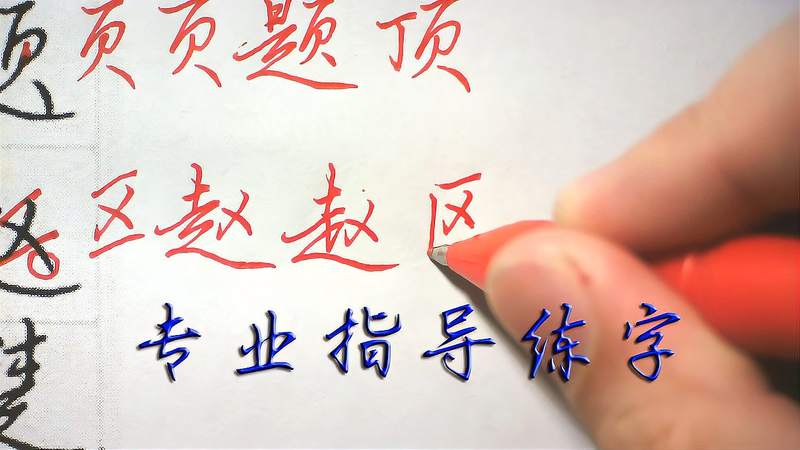 页页题顶
区赵赵区
专业指导练字